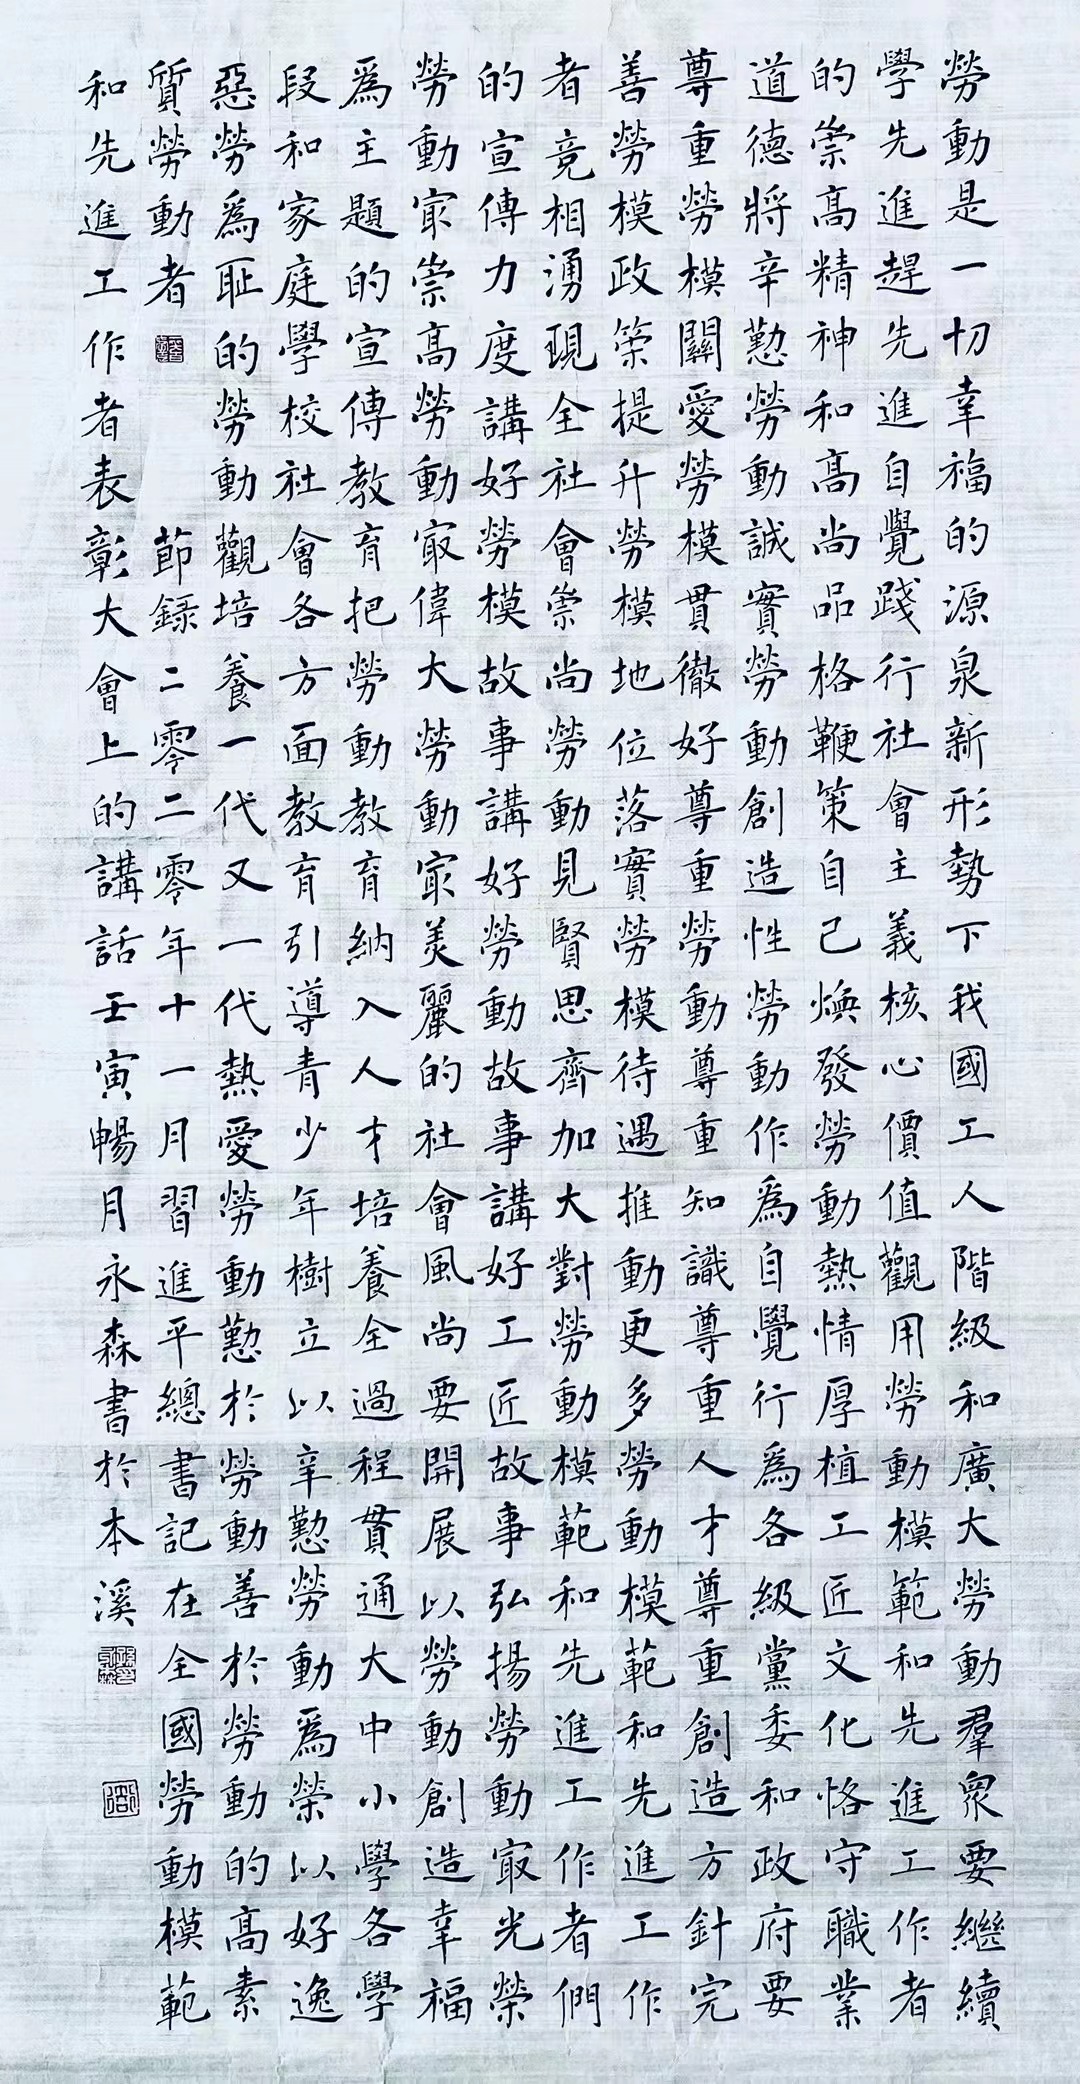 勞動是一切幸福的源泉新形勢下我國工人階級和廣大勞動羣眾要繼續
學先進趕先進自覺踐行社會主義核心價值觀用勞動模範和先進工作者
的崇高精神和高尚品格鞭策自己煥發勞動熱情厚植工匠文化恪守職業
道德將辛勤勞動誠實勞動創造性勞動作為自覺行為各級黨委和政府要
尊重勞模關愛勞模貫徹好尊重勞動尊重知識尊重人才尊重創造方針完
善勞模政策提升勞模地位落實勞模待遇推動更多勞動模範和先進工作
者竞相湧現全社會崇尚勞動見賢思齊加大對勞動模範和先進工作者們
的宣傳力度講好勞模故事講好勞動故事講好工匠故事弘揚勞動冣光榮
勞動冣崇高勞動冣偉大勞動冣美麗的社會風尚要開展以勞動創造幸福
為主題的宣傳教育把勞動教育納入人才培養全過程貫通大中小學各學
段和家庭學校社會各方面教育引導青少年樹立以辛勤勞動為榮以好逸
惡勞為恥的勞動觀培養一代又一代熱愛勞動勤於勞動善於勞動的高素
質勞動者 節錄二零二零年十一月習進平總書記在全國勞動模範
和先進工作者表彰大會上的講話壬寅暢月永森書於本溪